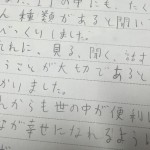 の中にも、たく
ん種類があると聞いて
っくりしました。
れに、見る、聞く、話す
うことが大切であると
かいました。
んからも世の中が便利に
なが幸せになれるように